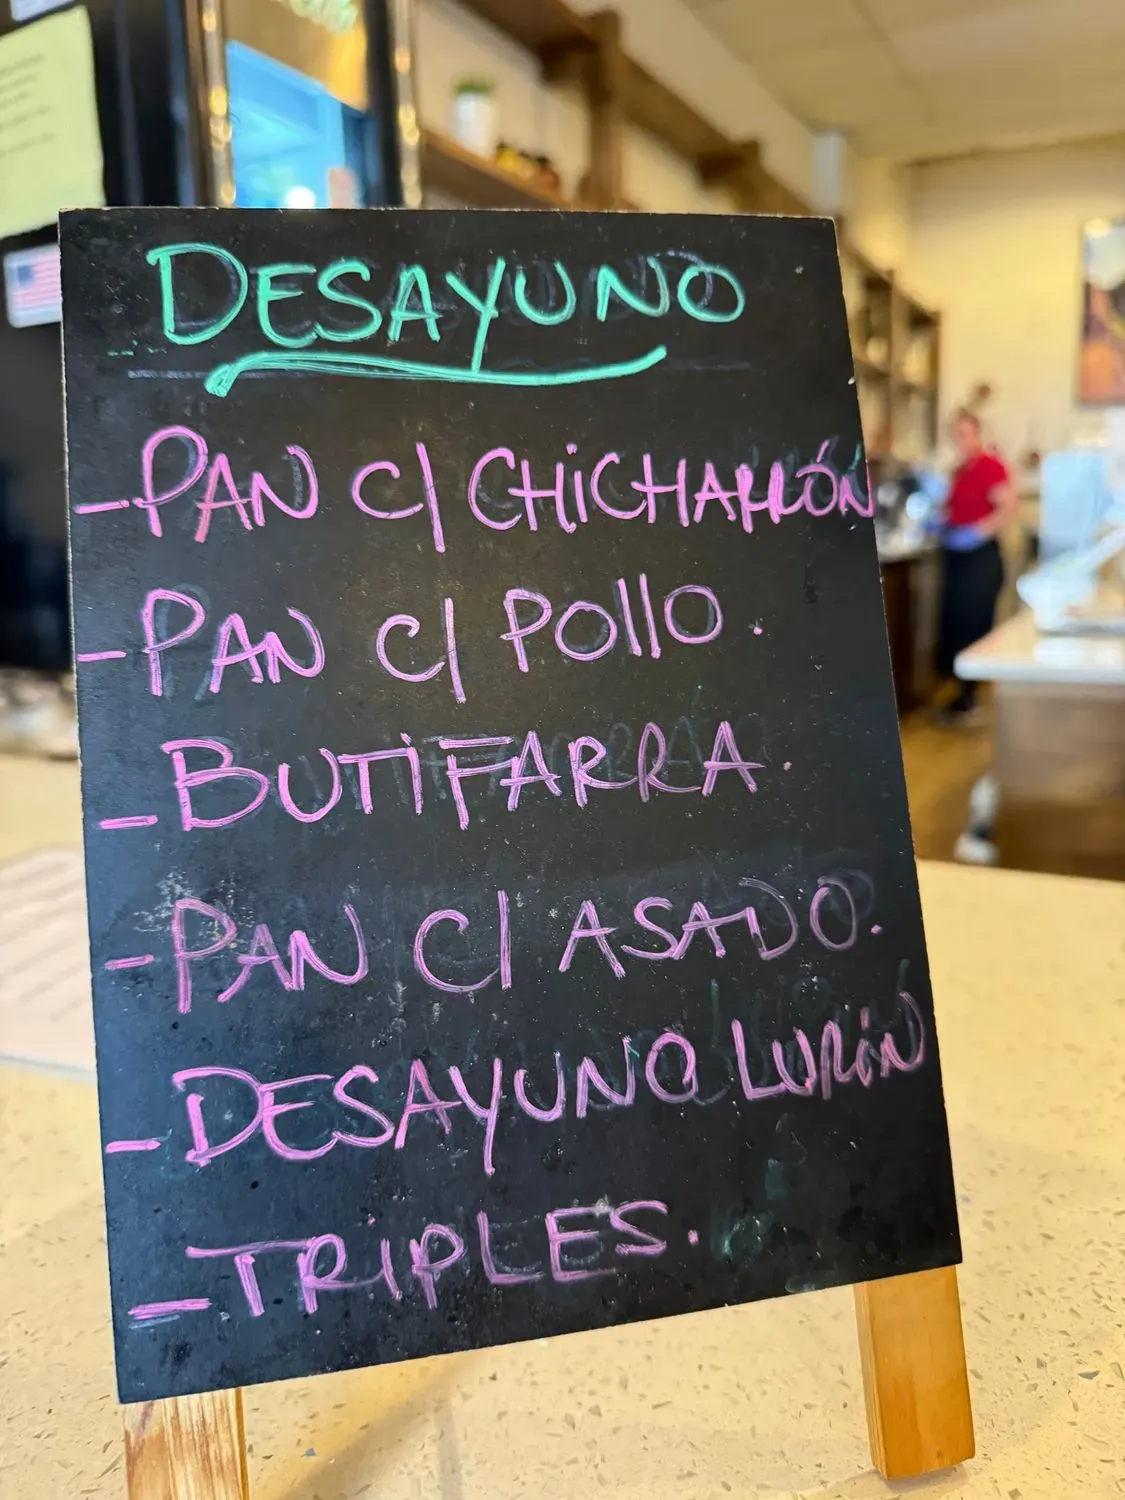 DESAYUNO
- PAN C/ CHICHARRÓN
- PAN C/ POllO.
- BUTIFARRA.
- PAN C/ ASADO.
- DESAYUNO LURíN
- TRIPLES.